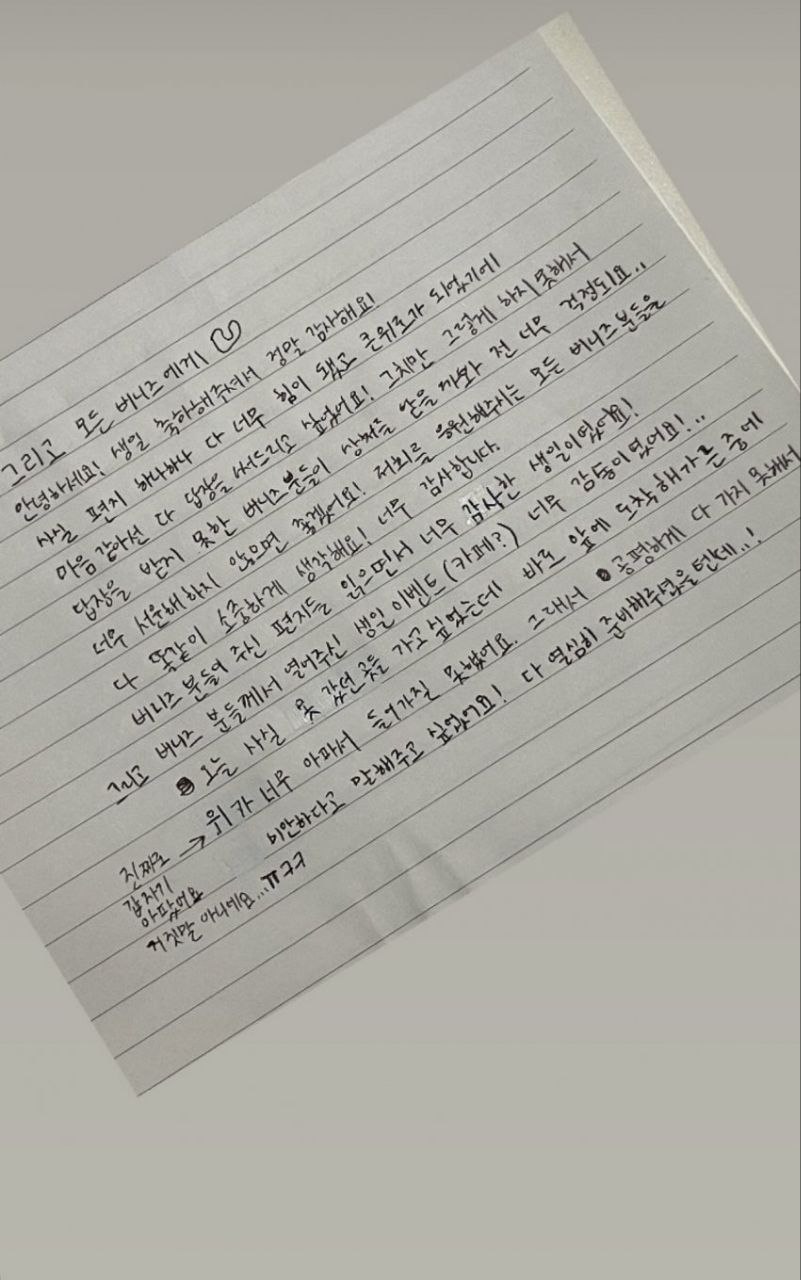 그리고 모든 버니즈에게
안녕하세요! 생일 축하해주셔서 정말 감사해요!
사실 편지 하나하나 다 너무 힘이 됐고 큰위로가 되었기에
마음같아선 다 답장을 써드리고 싶었어요! 그치만 그렇게 하지 못해서
답장을 받지 못한 버니즈분들이 상처를 받을까봐 전 너무 걱정되요..
너무 서운해하지 않으면 좋겠어요! 저희를 응원해주시는 모든 버니즈분들을
다 똑같이 소중하게 생각해요! 너무 감사합니다.
버니즈 분들이 주신 편지들 읽으면서 너무 감사한 생일이었어요!
그리고 버니즈 분들께서 열어주신 생일이벤트(카페?) 너무 감동이었어요!..
오늘 사실 못 갔던 곳들 가고싶었는데 바로 앞에 도착해가는 중에
위가 너무 아파서 들어가질 못했어요. 그래서 공평하게 다 가지 못해서
미안하다고 말해주고 싶었어요! 다 열심히 준비해주셨을텐데..!
진짜로 →
갑자기
아팠어요
거짓말 아니에요...ㅠㅋㅋ